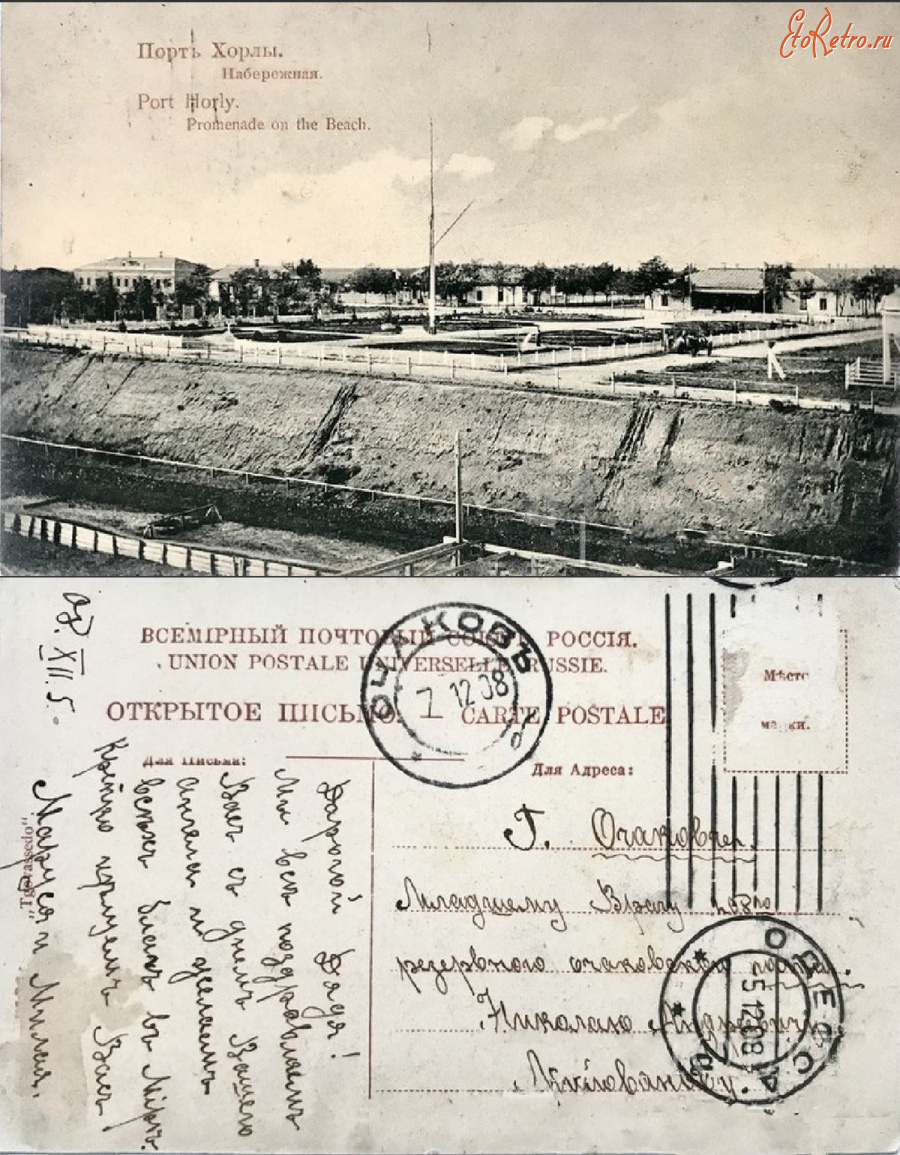 EtoRetro.ru
Портъ Хорлы.
Набережная.
Port Horly.
Promenade on the Beach.
ВСЕМІРНЫЙ ПОЧТОВЫЙ СОЮЗЪ РОССІЯ.
UNION POSTALE UNIVERSELLE RUSSIE.
ОТКРЫТОЕ ПИСЬМО. CARTE POSTALE
Для Письма:
Для Адреса:
Мѣсто
марки.
ОЧАКОВЪ
7 12 08
ОДЕССА
5 12 08
XII. 5
Дорогой Дядя!
Мы всѣ поздравляемъ
Васъ съ днемъ Вашего
Ангела и желаемъ
всѣхъ благъ въ Мірѣ.
Крѣпко цѣлуемъ Васъ
Маруся и Миля.
Г. Очаковъ
Младшему Врачу
резервного очаковского
Николаю Андреевичу